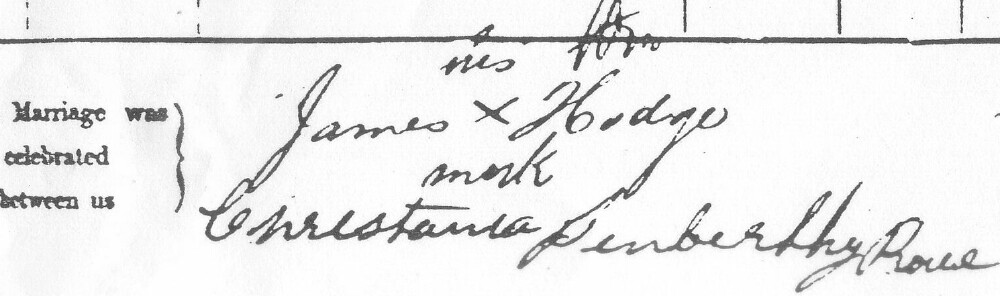 his
Marriage was James x Hodge
celebrated mark
between us Chrestania Penberthy Rowe